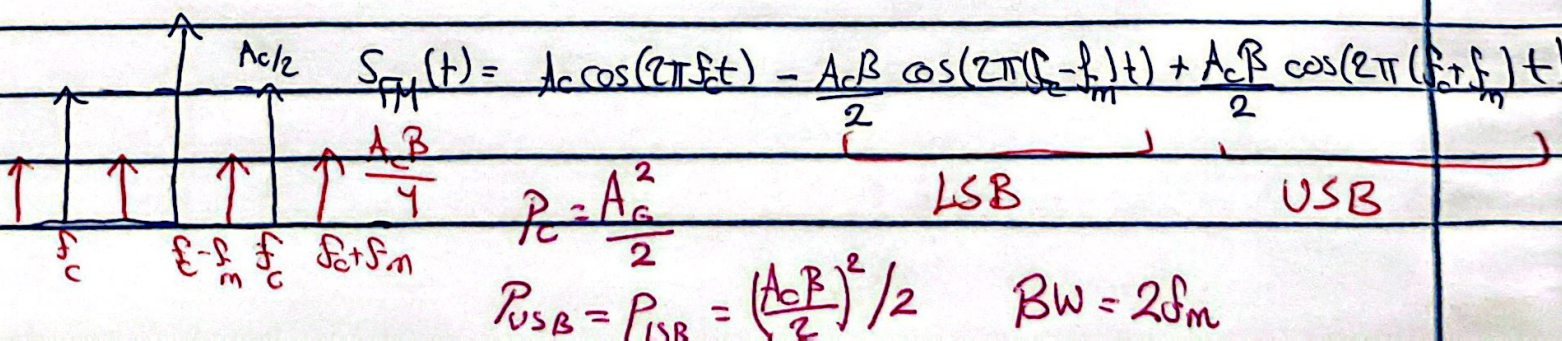 Ac/2 S_FM(t) = Ac cos(2πfct) - AcB/2 cos(2π(fc-fm)t) + AcB/2 cos(2π(fc+fm)t)
AcB/4 LSB USB
Pc = Ac²/2
fc fc-fm fc fc+fm
PUSB = PLSB = (AcB/2)²/2 BW = 2fm